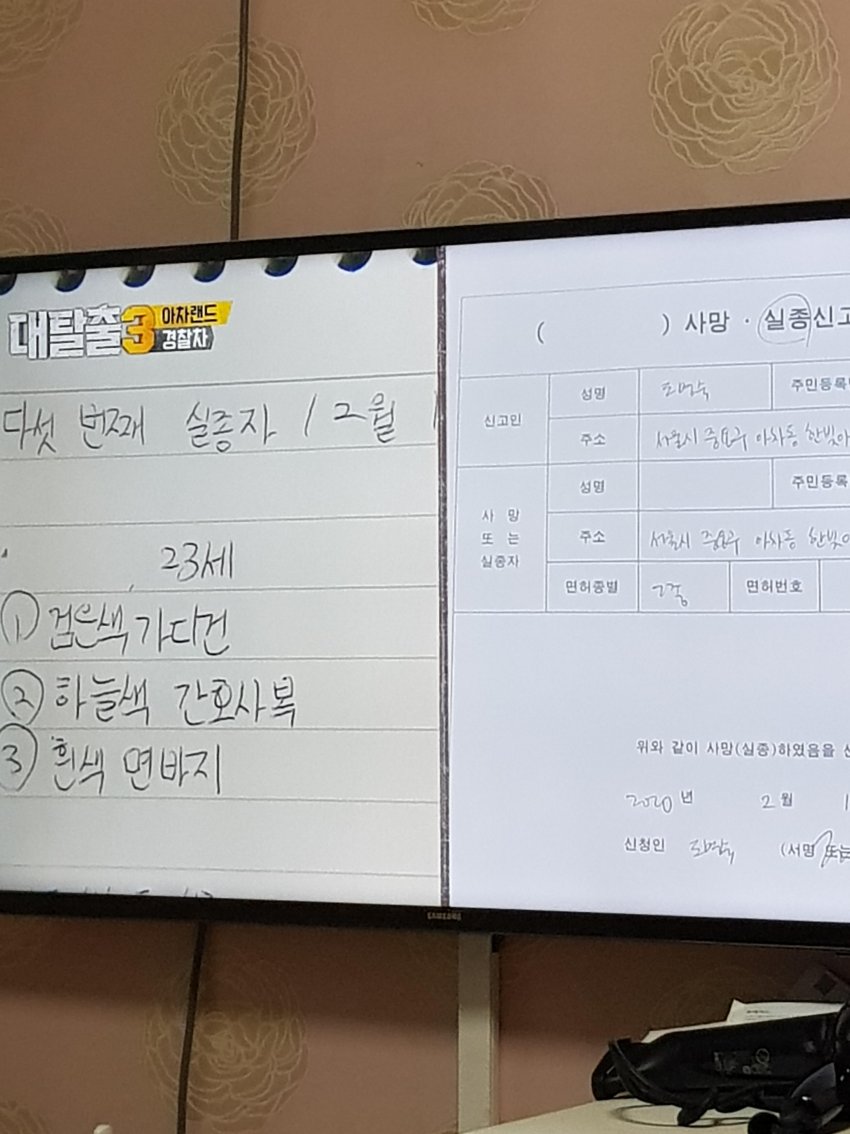 대탈출3
아차랜드
경찰차
다섯 번째 실종자 / 2월 1
23세
① 검은색 가디건
② 하늘색 간호사복
③ 흰색 면바지
( ) 사망 · 실종신고
신고인
성명
주민등록
주소
서울시 중요구 아차동 한빛아
사망
또는
실종자
성명
주민등록
주소
서울시 중요구 아차동 한빛아
면허종별
2종
면허번호
위와 같이 사망(실종)하였음을 신
2020 년 2 월 1
신청인
(서명 또는
SAMSUNG